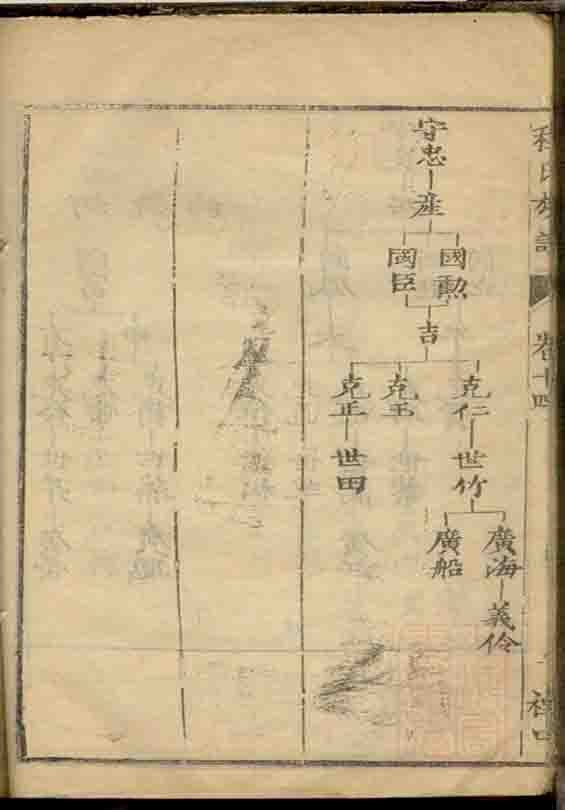 程氏族譜
卷十四
守忠
産
國勲
國臣
吉
克仁
克王
克正
世竹
世田
廣海
廣船
義伶